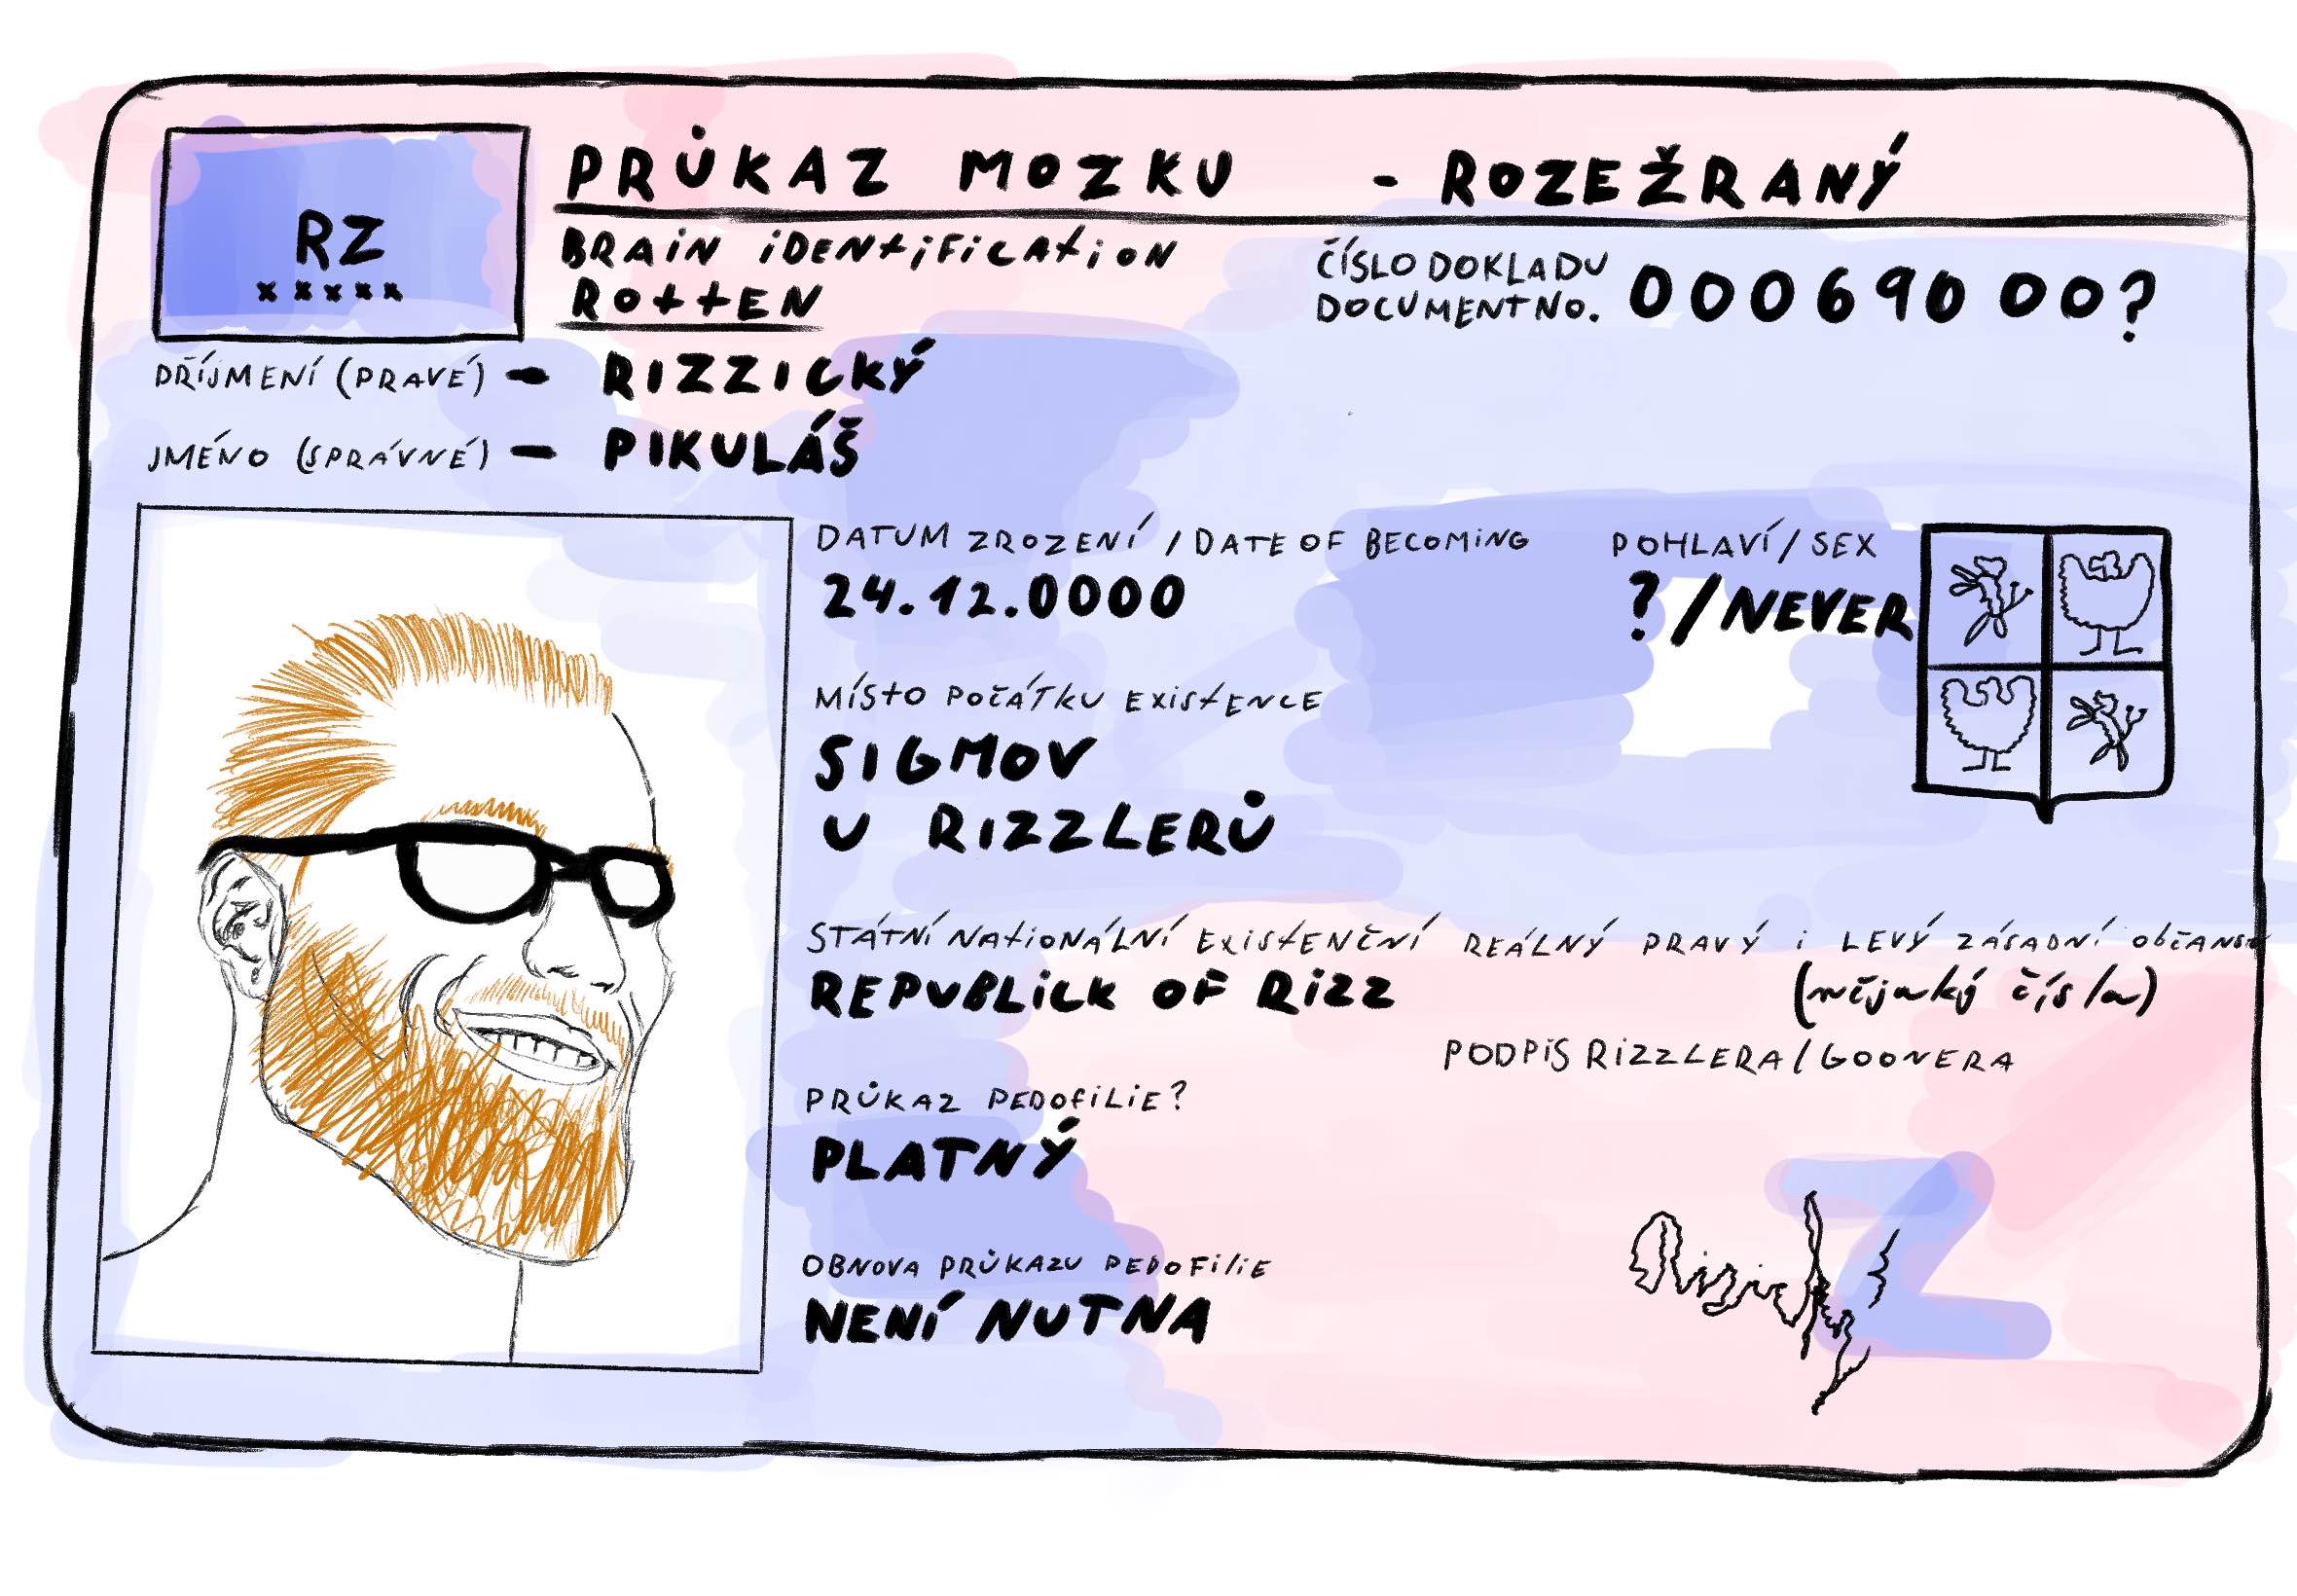 PRŮKAZ MOZKU - ROZEŽRANÝ
RZ
xxxxx
BRAIN IDENTIFICATION
ROTTEN
ČÍSLO DOKLADU
DOCUMENT NO. 00069000?
PŘÍJMENÍ (PRAVÉ) - RIZZICKÝ
JMÉNO (SPRÁVNÉ) - PIKULÁŠ
DATUM ZROZENÍ / DATE OF BECOMING
24.12.0000
POHLAVÍ/SEX
?/NEVER
MÍSTO POČÁTKU EXISTENCE
SIGMOV
U RIZZLERŮ
STÁTNÍ NATIONÁLNÍ EXISTENČNÍ REÁLNÝ PRAVÝ i LEVÝ ZÁSADNÍ
REPUBLICK OF RIZZ
(nějaký čísla)
PODPIS RIZZLERA/GOONERA
PRŮKAZ PEDOFILIE?
PLATNÝ
OBNOVA PRŮKAZU PEDOFILIE
NENÍ NUTNA
Z